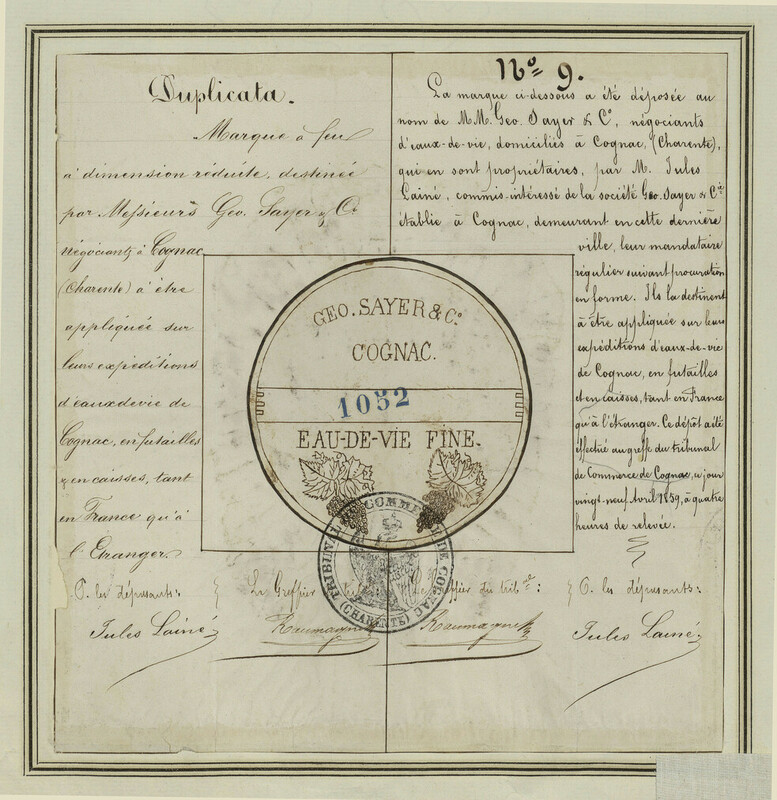 Duplicata.
Marque à feu
à dimension réduite, destinée
par Messieurs Geo. Sayer & Cº
négociants à Cognac
(Charente) à être
appliquée sur
leurs expéditions
d'eaux de vie de
Cognac, en futailles
& en caisses, tant
en France qu'à
l'Etranger.
P. les déposants:
Jules Lainé
Le Greffier
Nº 9.
La marque ci-dessous a été déposée au
nom de MM. Geo. Sayer & Cº, négociants
d'eaux-de-vie, domiciliés à Cognac, (Charente),
qui en sont propriétaires, par M. Jules
Lainé, commis-intéressé de la société Geo. Sayer & Cie
établie à Cognac, demeurant en cette dernière
ville, leur mandataire
régulier suivant procuration
en forme. Ils la destinent
à être appliquée sur leurs
expéditions d'eaux-de-vie
de Cognac, en futailles
et en caisses, tant en France
qu'à l'étranger. Ce dépôt a été
effectué au greffe du tribunal
de Commerce de Cognac, ce jour
vingt-neuf Avril 1859, à quatre
heures de relevée.
Le Greffier du tribal:
P. les déposants:
Jules Lainé
GEO. SAYER & Cº
COGNAC.
1052
EAU-DE-VIE FINE.
TRIBUNAL DE COMMERCE DE COGNAC
(CHARENTE)